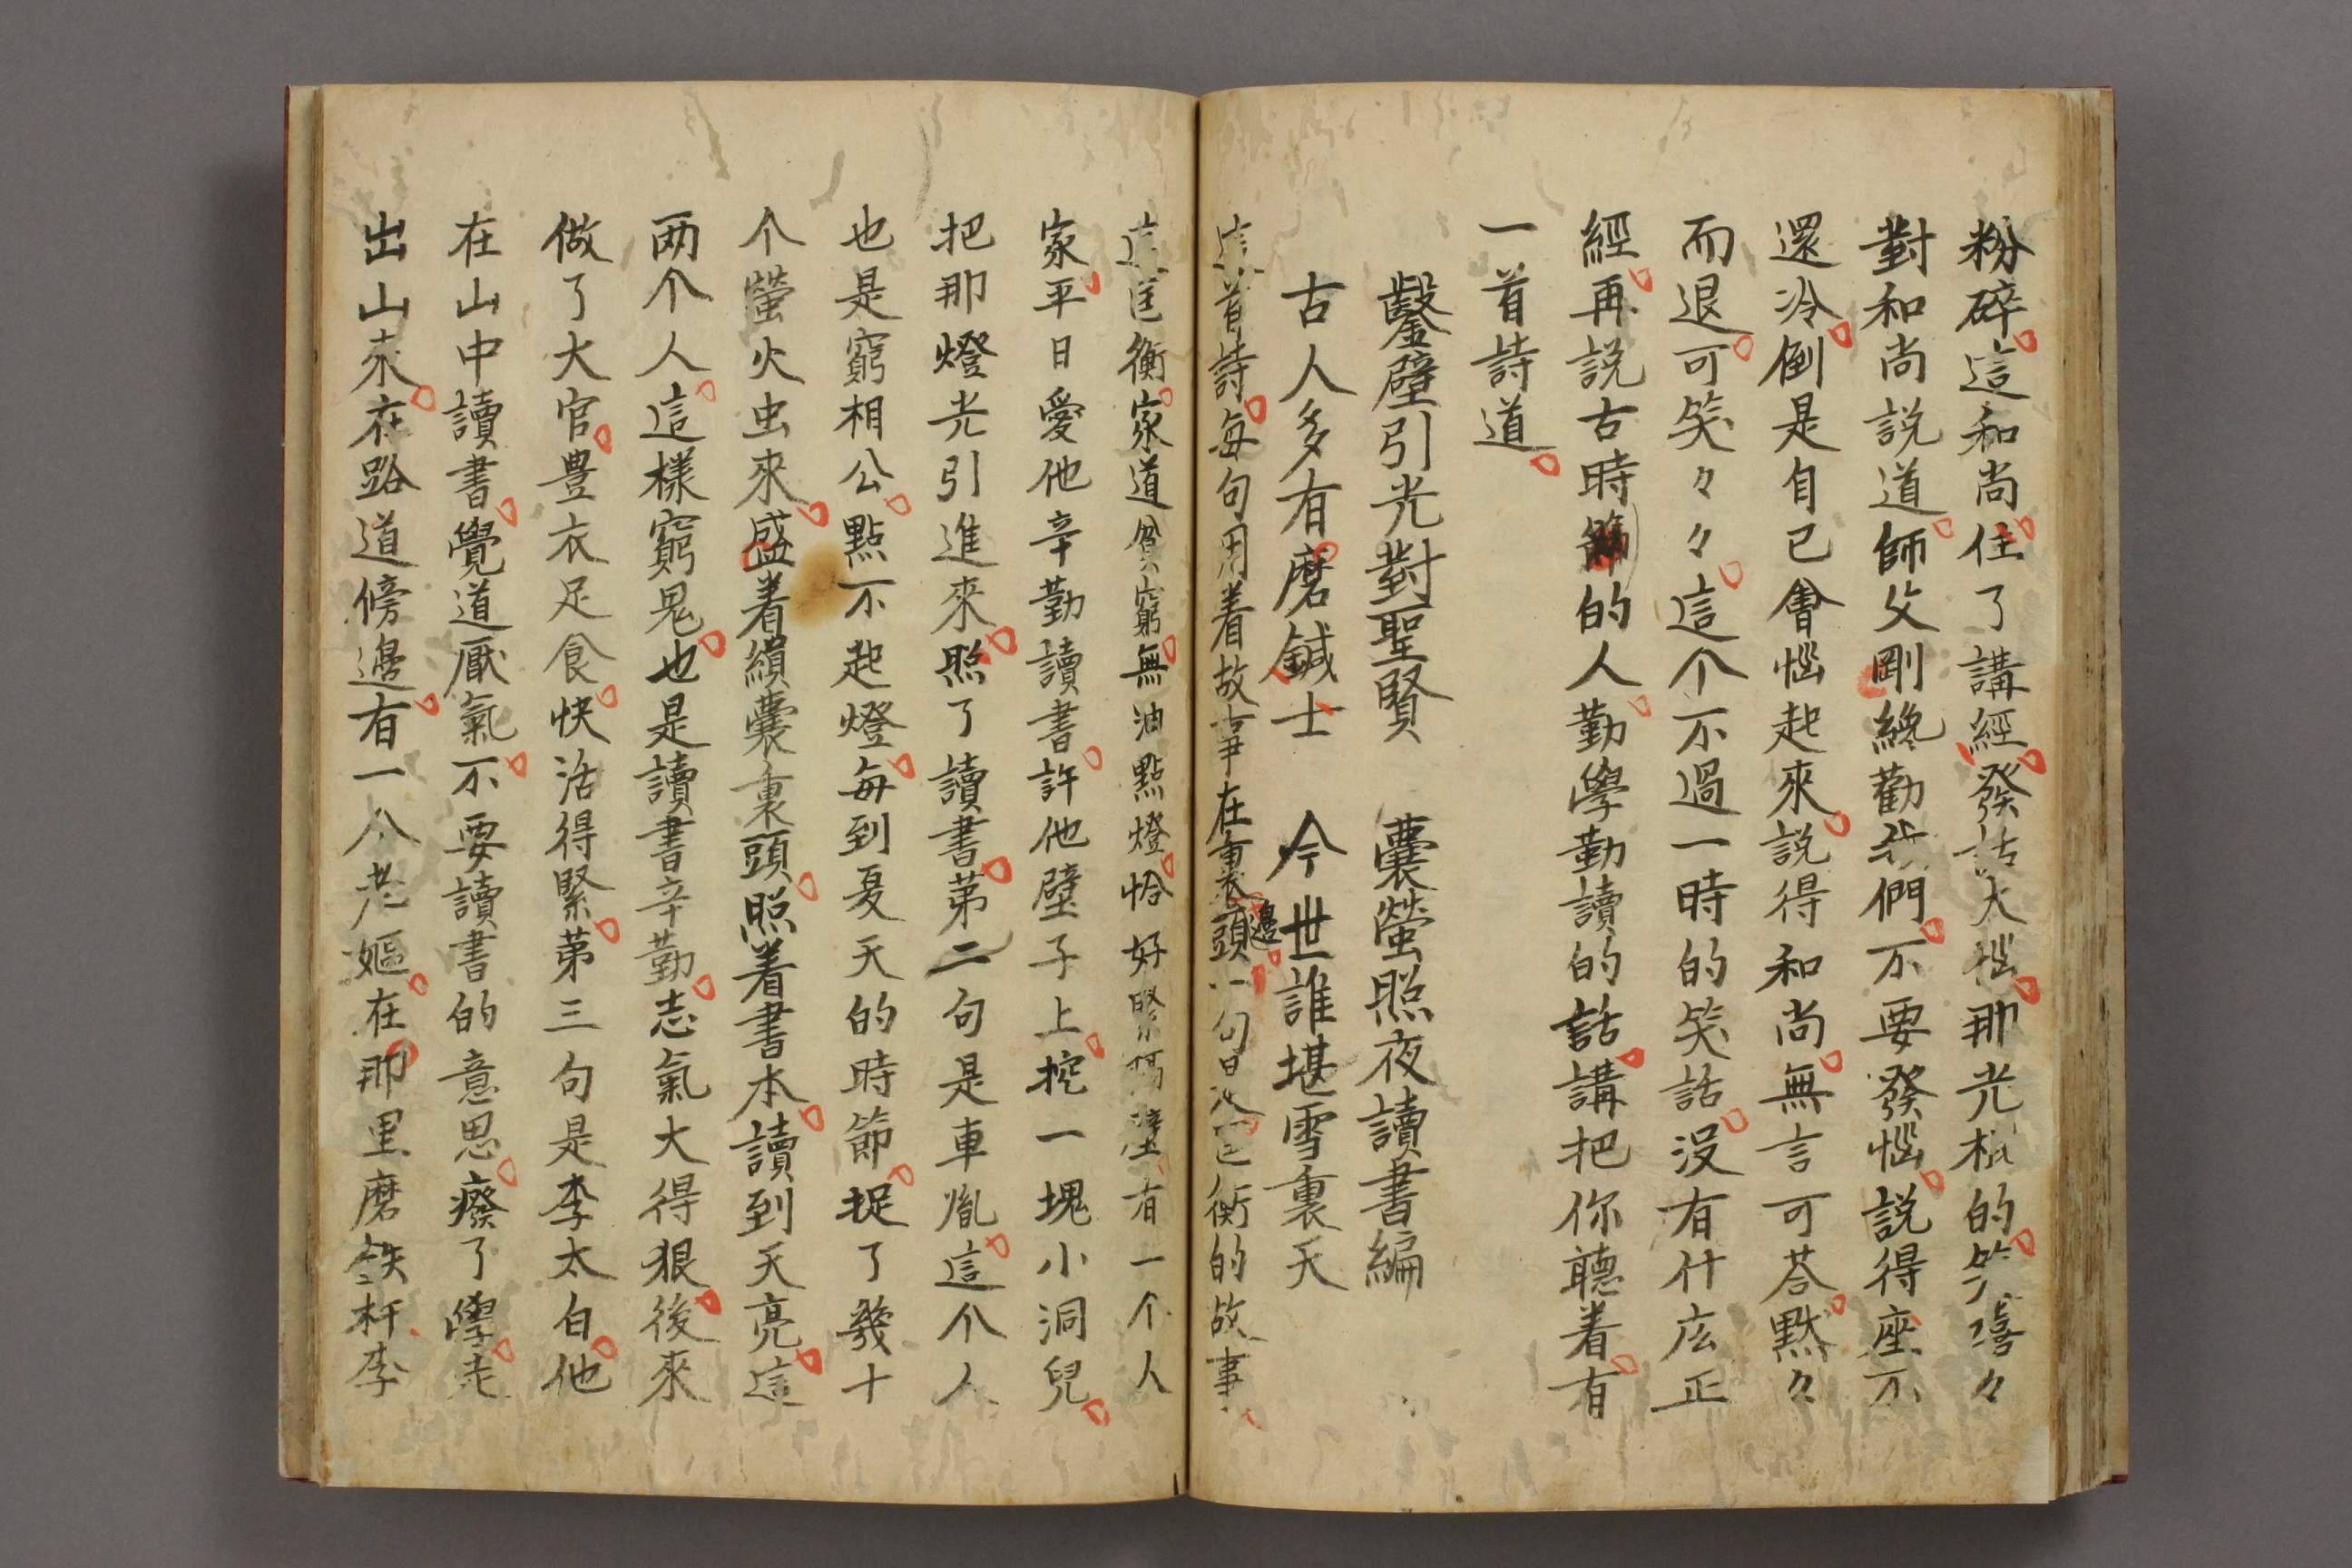 粉碎這和尚住了講經發話大惱那光棍的笑嘻々
對和尚説道師父剛纔勸我們不要發惱説得座不
還冷倒是自己會惱起來説得和尚無言可荅黙々
而退可笑々々這个不過一時的笑話没有什庅正
經再説古時節的人勤學勤讀的話講把你聽着有
一首詩道
鑿壁引光對聖賢　囊螢照夜讀書編
古人多有磨鍼士　今世誰堪雪裏天
這首詩每句用着故事在裏頭邊一句是匡衡的故事
這匡衡家道貧窮無油點燈恰好緊隔壁有一个人
家平日愛他辛勤讀書許他壁子上挖一塊小洞兒
把那燈光引進來照了讀書第二句是車胤這个人
也是窮相公點不起燈每到夏天的時節捉了幾十
个螢火虫來盛着縜囊裏頭照着書本讀到天亮這
两个人這樣窮鬼也是讀書辛勤志氣大得狠後來
做了大官豊衣足食快活得緊第三句是李太白他
在山中讀書覺道厭氣不要讀書的意思癈了學走
出山來在路道傍邊有一个老嫗在那里磨鉄杆李